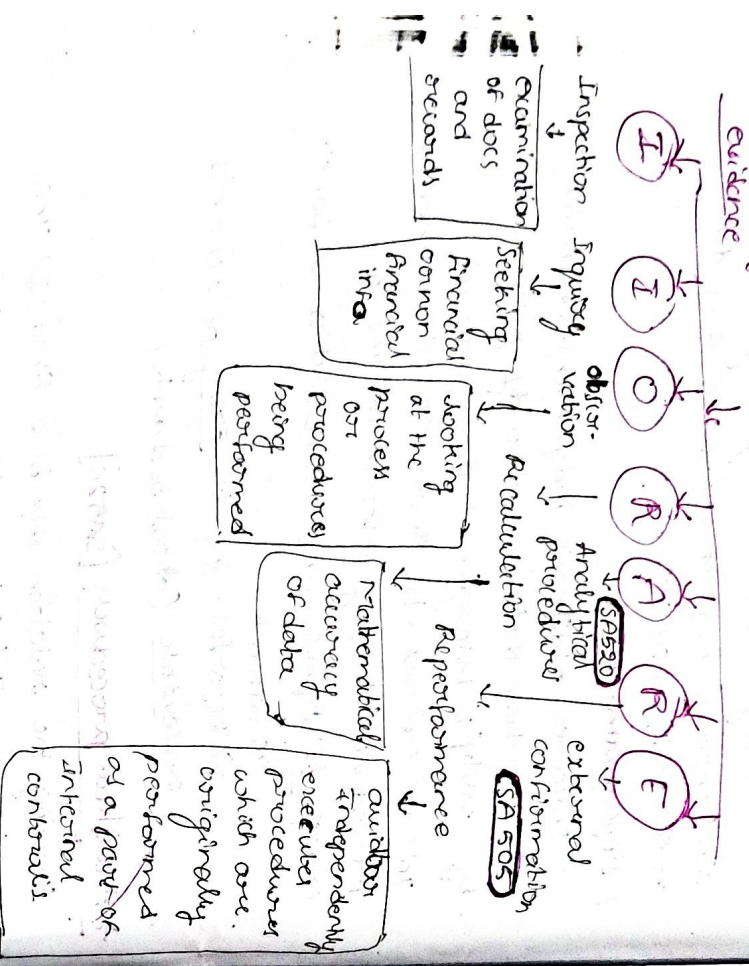 evidence
I
I
O
R
A
R
E
Inspection
examination
of docs
and
records
Inquirey
Seeking
financial
or non
financial
info
obser-
vation
Looking
at the
process
or
procedures
being
performed
Recalculation
Mathematical
accuracy
of data
Analytical
procedures
SA520
Reperformance
auditor
independently
executes
procedures
which are
originally
performed
as a part of
Internal
controls
external
confirmation
SA 505